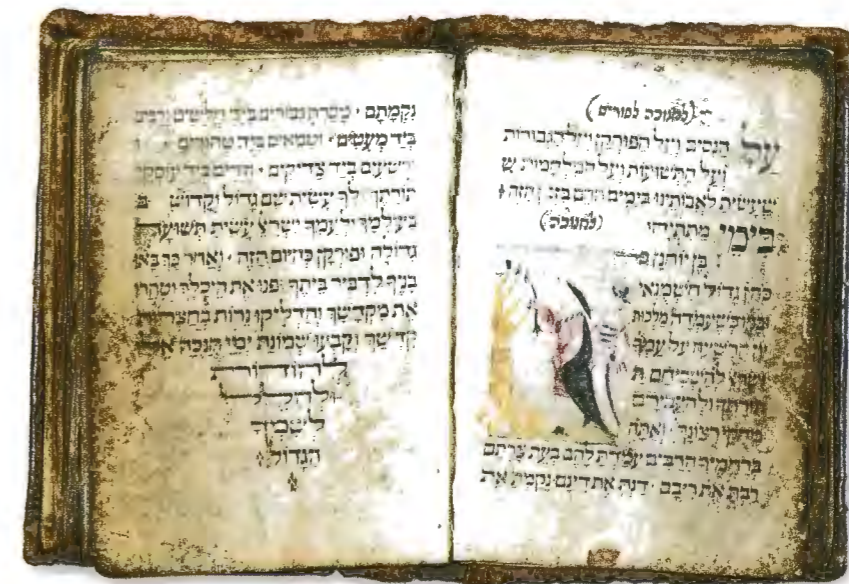 (לחנוכה לפורים)
עַל הַנִּסִּים וְעַל הַפּוּרְקָן וְעַל הַגְּבוּרוֹת
וְעַל הַתְּשׁוּעוֹת וְעַל הַמִּלְחָמוֹת שֶׁ
שֶׁעָשִׂיתָ לַאֲבוֹתֵינוּ בַּיָּמִים הָהֵם בַּזְּמַן הַזֶּה
(לחנוכה)
בִּימֵי מַתִּתְיָהוּ
בֶּן יוֹחָנָן
כֹּהֵן גָּדוֹל חַשְׁמֻנַאי
וּבָנָיו כְּשֶׁעָמְדָה מַלְכוּת
הָרְשָׁעָה עַל עַמְּךָ
לְהַשְׁכִּיחָם ת
תּוֹרָתֶךָ וּלְהַעֲבִירָם
רְצוֹנֶךָ וְאַתָּה
בְּרַחֲמֶיךָ הָרַבִּים עָמַדְתָּ לָהֶם בְּעֵת צָרָתָם
רַבְתָּ אֶת רִיבָם דַּנְתָּ אֶת דִּינָם נָקַמְתָּ אֶת
נִקְמָתָם מָסַרְתָּ גִבּוֹרִים בְּיַד חַלָּשִׁים וְרַבִּים
בְּיַד מְעַטִּים וּטְמֵאִים בְּיַד טְהוֹרִים ו
וּרְשָׁעִים בְּיַד צַדִּיקִים וְזֵדִים בְּיַד עוֹסְקֵי
תּוֹרָתֶךָ לְךָ עָשִׂיתָ שֵׁם גָּדוֹל וְקָדוֹשׁ ב
בְּעוֹלָמֶךָ וּלְעַמְּךָ יִשְׂרָאֵל עָשִׂיתָ תְּשׁוּעָה
גְדוֹלָה וּפוּרְקָן כְּהַיּוֹם הַזֶּה וְאַחַר כָּךְ בָּאוּ
בָנֶיךָ לִדְבִיר בֵּיתֶךָ פִּנּוּ אֶת הֵיכָלֶךָ וְטִהֲרוּ
אֶת מִקְדָּשֶׁךָ וְהִדְלִיקוּ נֵרוֹת בְּחַצְרוֹת
קָדְשֶׁךָ וְקָבְעוּ שְׁמוֹנַת יְמֵי חֲנֻכָּה אֵלּוּ
לְהוֹדוֹת
וּלְהַלֵּל
לְשִׁמְךָ
הַגָּדוֹל